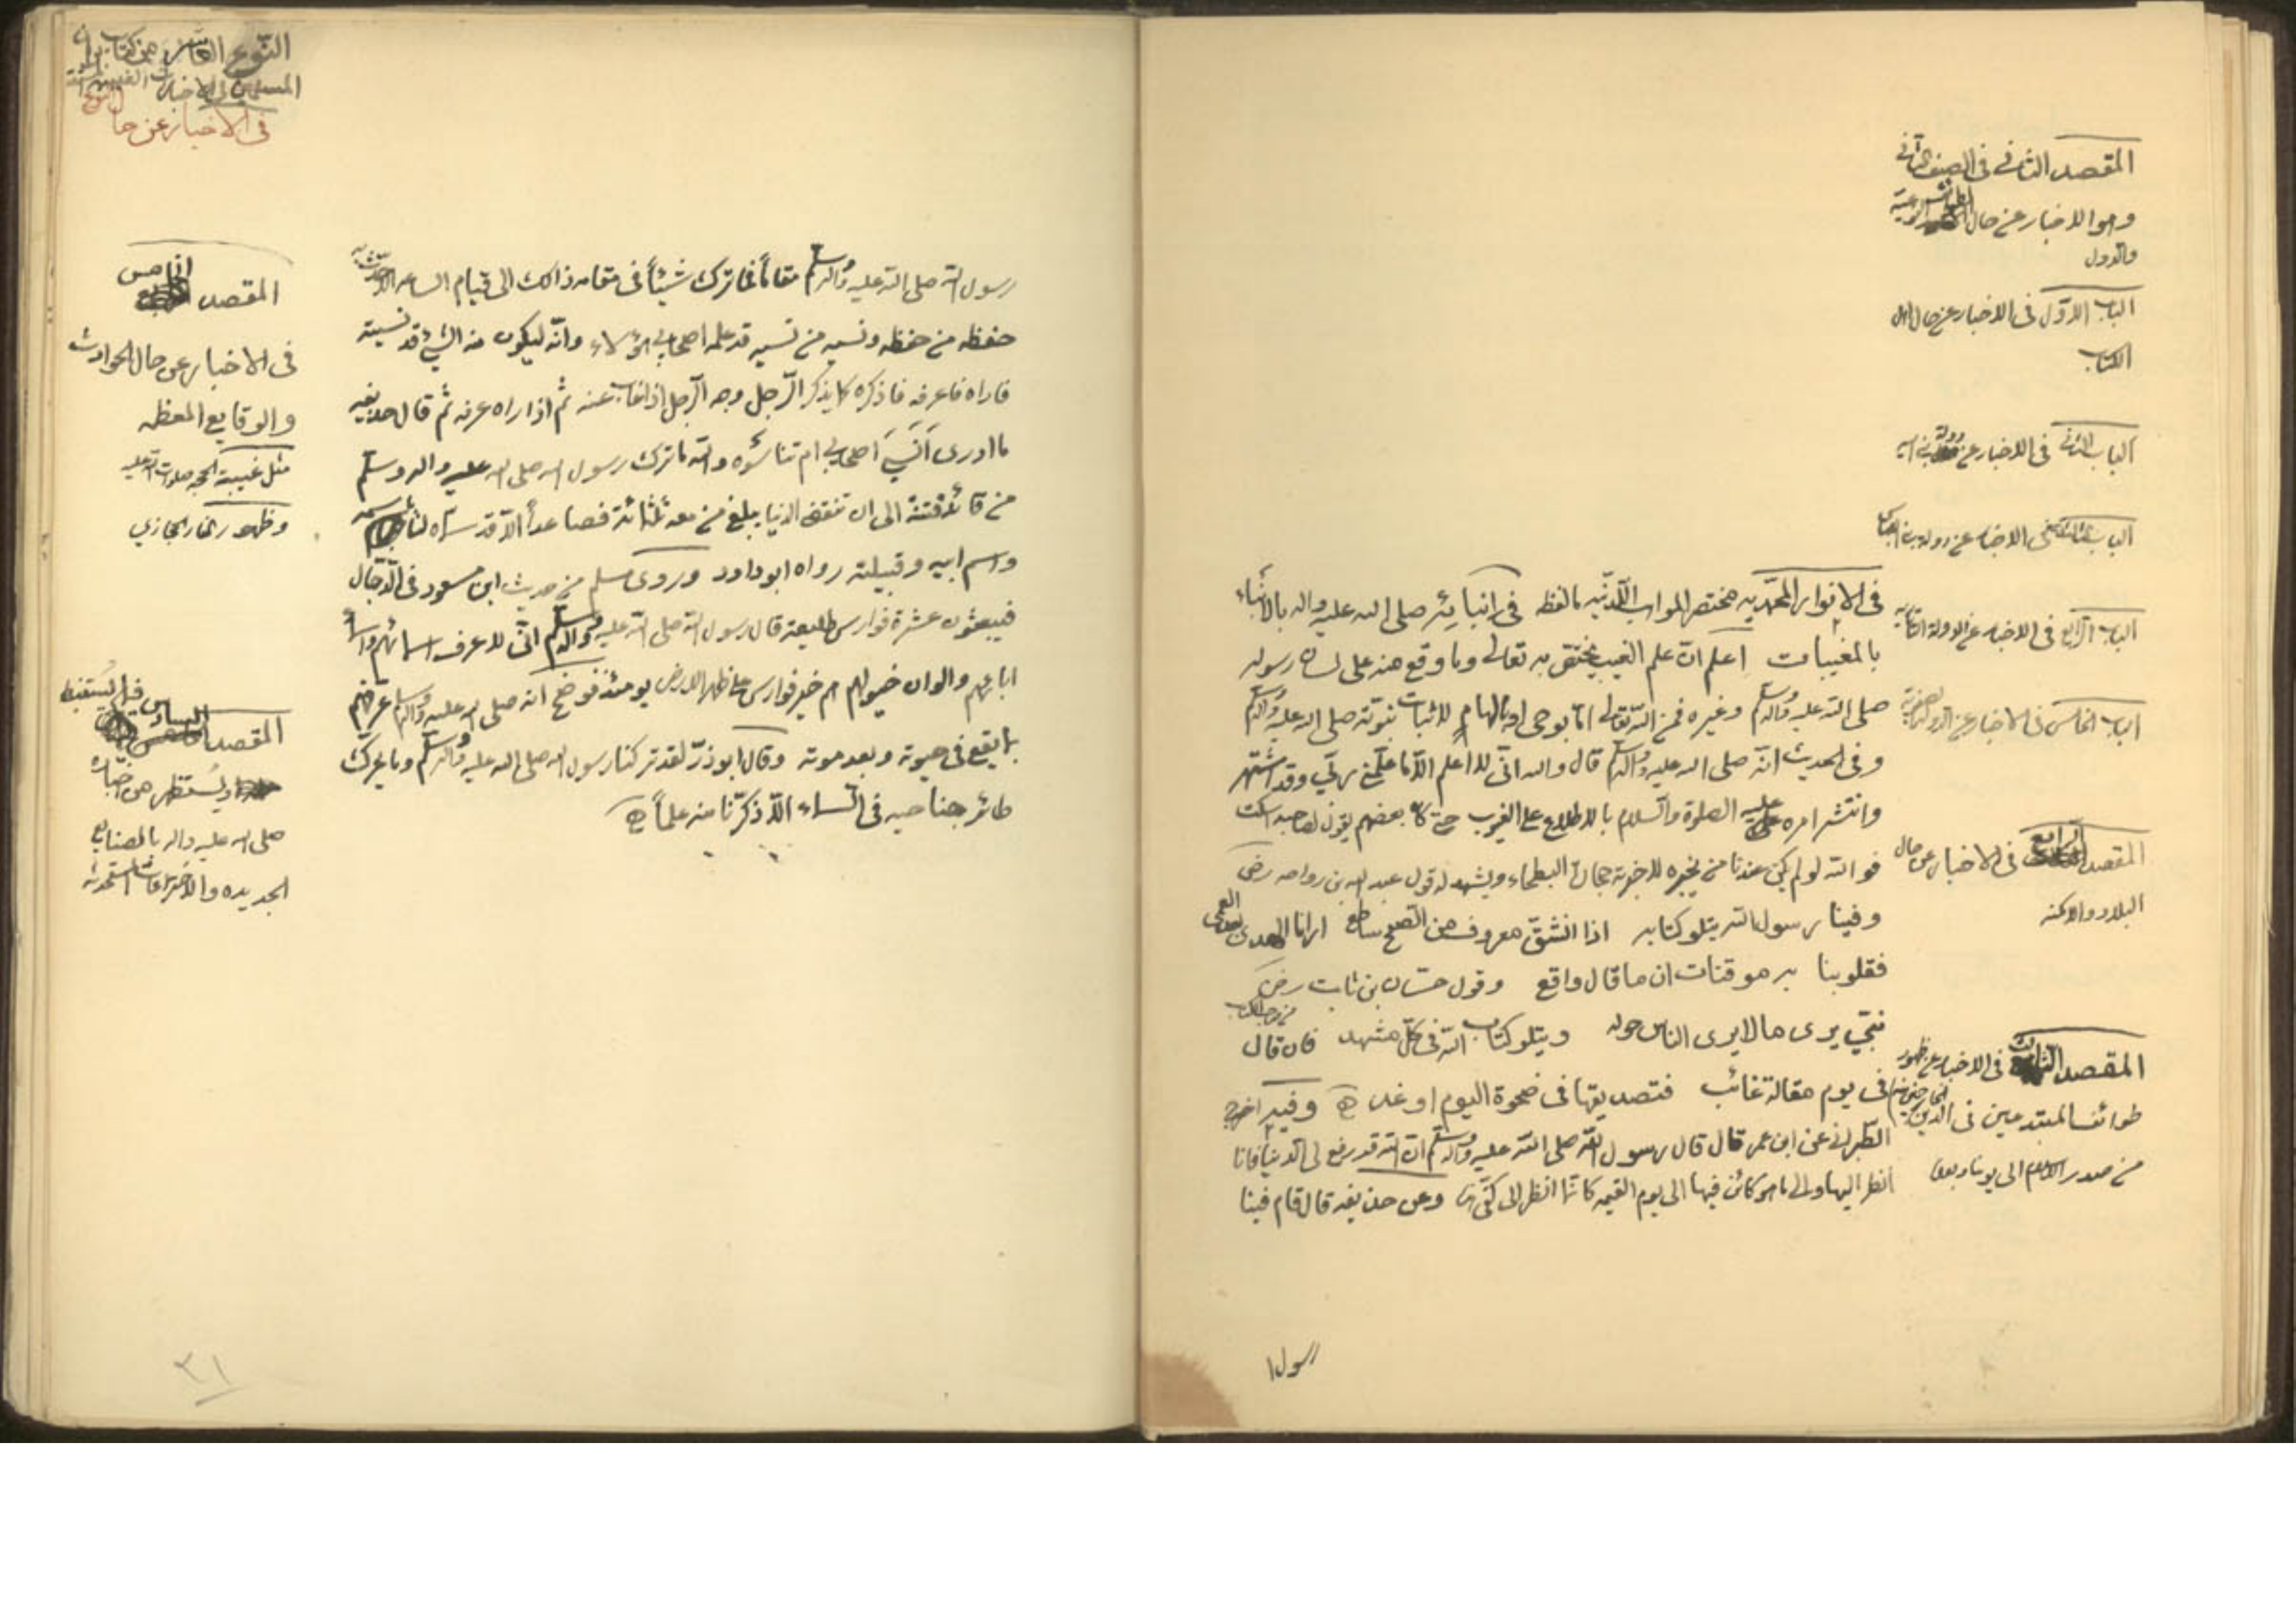 المقصد الثانى فى الصنف الثانى
وهو الاخبار عن حال
والدول
الباب الاوّل فى الاخبار عن حال اهل
الكتاب
الباب الثانى فى الاخبار عن دولة بنى اميه
الباب الثالث فى الاخبار عن دولة بنى العباس
الباب الرّابع فى الاخبار عن الدولة
الباب الخامس فى الاخبار عن الدولة
المقصد الرابع فى الاخبار عن حال
البلاد والامكنه
المقصد الثالث فى الاخبار عن ظهور
طوائف المبتدعين فى الدين
من صدر الاسلام الى يومنا وبعده
فى الانوار المحمّديه مختصر المواهب اللّدنّيه مالفظه فى انبائه صلى الله عليه واله بالانباء
بالمغيبات اعلم انّ علم الغيب يختص به تعالى وما وقع منه على لسان رسوله
صلى الله عليه واله وسلم وغيره فمن الله تعالى امّا بوحى او بالهام للاثبات نبوّته صلى الله عليه واله وسلم
وفى الحديث انّه صلى الله عليه واله وسلم قال والله انّى لا اعلم الّا ما علّمنى ربّى وقد اشتهر
وانتشر امره عليه الصلوة والسّلام بالاطلاع على الغيوب حتى كان بعضهم يقول لصاحبه اسكت
فوالله لو لم يكن عندنا من يخبره لاخبرته حجارة البطحاء ويشهد له قول عبد الله بن رواحه رضى
وفينا رسول الله يتلو كتابه اذا انشقّ معروف من الصّبح ساطع ارانا الهدى بعد العمى
فقلوبنا به موقنات ان ما قال واقع وقول حسّان بن ثابت رضى
نبىّ يرى ما لا يرى الناس حوله ويتلو كتاب الله فى كلّ مشهد فان قال
فى يوم مقالة غائب فتصديقها فى ضحوة اليوم او غد وفيه اخرج
الطّبرانى عن ابن عمر قال قال رسول الله صلى الله عليه واله وسلم ان الله قد رفع لى الدّنيا فانا
انظر اليها والى ما هو كائن فيها الى يوم القيمه كانّما انظر الى كفّى هذه وعن حذيفه قال قام فينا
رسول ا
النّوع العاشر من كتاب
المسلمين فى الاخبار
فى الاخبار عن حال
المقصد الخامس
فى الاخبار عن حال الحوادث
والوقايع المعظمه
مثل غيبة الحجه صلوات الله عليه
وظهور النار الحجازى
المقصد السادس فيما يستنبط
او يستظهر من اخباره
صلى الله عليه واله بالصنايع
الجديده والاختراعات المستحدثه
رسول الله صلى الله عليه واله وسلم مقاما فما ترك شيئاً فى مقامه ذالك الى قيام الساعه الّا حدّث به
حفظه من حفظه ونسيه من نسيه قد علمه اصحابى هؤلاء وانّه ليكون منه الشئ قد نسيته
فاراه فاعرفه فاذكره كما يذكر الرّجل وجه الرّجل اذا غاب عنه ثم اذا راه عرفه ثم قال حذيفه
ما ادرى اَنَسِىَ اصحابى ام تناسَوه والله ما ترك رسول الله صلى الله عليه واله وسلم
من قائد فتنة الى ان تنقضى الدنيا يبلغ من معه ثلثمائة فصاعداً الّا قد سمّاه لنا باسمه
واسم ابيه وقبيلته رواه ابو داود وروى مسلم من حديث ابن مسعود فى الدّجّال
فيبعثون عشرة فوارس طليعة قال رسول الله صلى الله عليه واله وسلم انّى لاعرف اسمائهم واسماء
ابائهم والوان خيولهم هم خير فوارس على ظهر الارض يومئذ فوضح انه صلى الله عليه واله وسلم عرفهم
بما يقع فى حيوته وبعد موته وقال ابو ذرّ لقد تركنا رسول الله صلى الله عليه واله وسلم وما يحرّك
طائر جناحيه فى السّماء الّا ذكرنا منه علماً
٣١